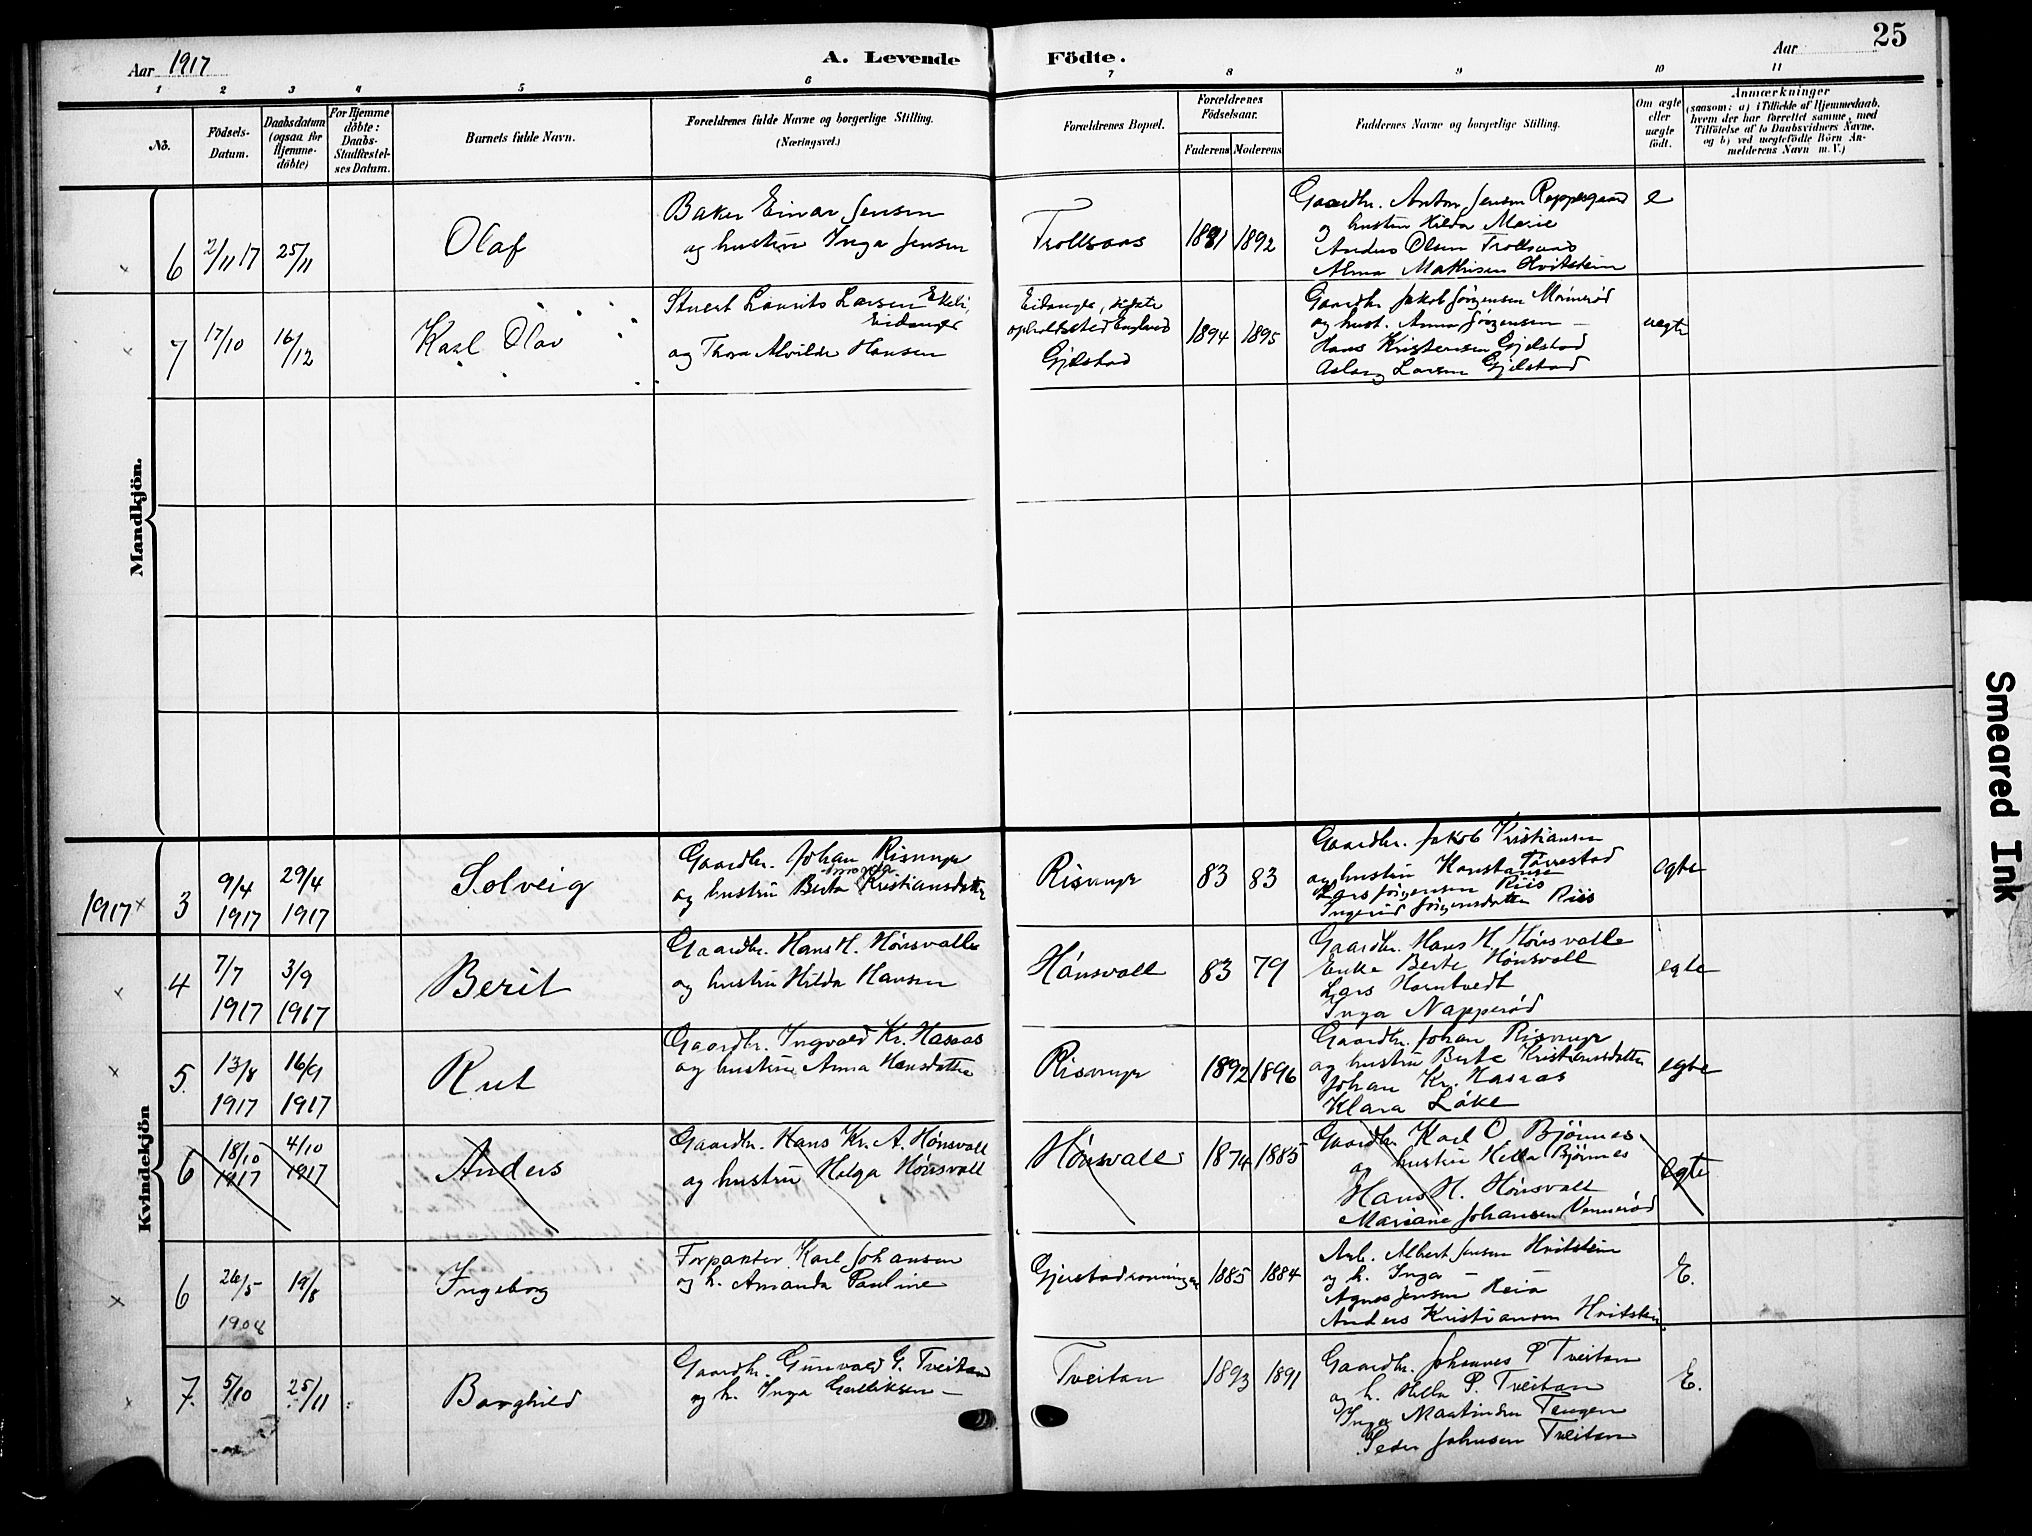 Aar 1917
A. Levende Födte.
Aar
25
1 2 3 4 5 6 7 8 9 10 11
No.
Födsels-Datum.
Daabsdatum (ogsaa for Hjemme-döbte)
For Hjemme döbte: Daabs-Stadfæstel-ses Datum.
Barnets fulde Navn.
Forældrenes fulde Navne og borgerlige Stilling.
(Næringsvei.)
Forældrenes Bopæl.
Forældrenes Födselsaar.
Faderens Moderens
Faddernes Navne og borgerlige Stilling.
Om ægte eller uægte födt.
Anmærkninger
(saasom: a) i Tilfælde af Hjemmedaab, hvem der har forrettet samme, med Tilföielse af to Daabsvidners Navne, og b) ved uægtefödte Börn An-melderens Navn m. V.)
Mandkjön.
6 2/11 17 25/11 Olaf
Baker Einar Jensen
og hustru Inga Jensen
Trollsaas 1891 1892
Gaardbr. Anton Jensen
og hustru Hilda Marie
Anders Olsen Trollsaas
Alma Mathisen Hvitstein
e
7 17/10 16/12 Karl Olav
Stuert Laurits Larsen Ekeli, Eidanger
og Thora Alvilde Hansen
Eidanger, sidste
opholdssted England
Gjelstad
1894 1895
Gaardbr. Jakob Jørgensen
og hust. Anna Jørgensen —
Hans Kristensen Gjelstad
Aslaug Larsen Gjelstad
uegte
Kvindekjön
1917 3 9/4 1917 29/4 1917 Solveig
Gaardbr. Johan Rismyr
og hustru Berta Amanda Kristiansdatter
Rismyr 83 83
Gaardbr. Jakob Kristiansen
og hustru Konstanse Tørrestad
Lars Jørgensen Riis
Ingerid Jørgensdatter Riis
egte
4 7/7 1917 3/9 1917 Berit
Gaardbr. Hans H. Hønsvall
og hustru Hilda Hansen
Hønsvall 83 79
Gaardbr. Hans H. Hønsvall
Enke Berte Hønsvall
Lars Horntvedt
Inga Napperød
egte
5 13/8 1917 16/9 1917 Rut
Gaardbr. Ingvald Kr. Hasaas
og hustru Anna Hansdatter
Rismyr 1892 1896
Gaardbr. Johan Rismyr
og hustru Berte Kristiansdatter
Johan Kr. Hasaas
Klara Løke
egte
6 18/10 1917 4/10 1917 Anders
Gaardbr. Hans Kr. A. Hønsvall
og hustru Helga Hønsvall
Hønsvall 1874 1885
Gaardbr. Karl O Bjønnes
og hustru Hella Bjønnes
Hans H. Hønsvall
Mariane Johansen Vennerød
egte
6 26/5 1908 19/8 Ingeborg
Forpakter Karl Johansen
og h. Amanda Pauline
1885 1884
Arb. Albert Jensen Hvitstein
og h. Inga —
Agnes Jensen
Anders Kristiansen Hvitstein
E.
7. 5/10 25/11 Borghild
Gaardbr. Gunvald G. Tveitan
og h. Inga Gulliksen —
Tveitan 1893 1891
Gaardbr. Johannes P Tveitan
og h. Hella P. Tveitan
Inga Martinsen Tangen
Peder Johnsen Tveitan
E.
Smeared Ink